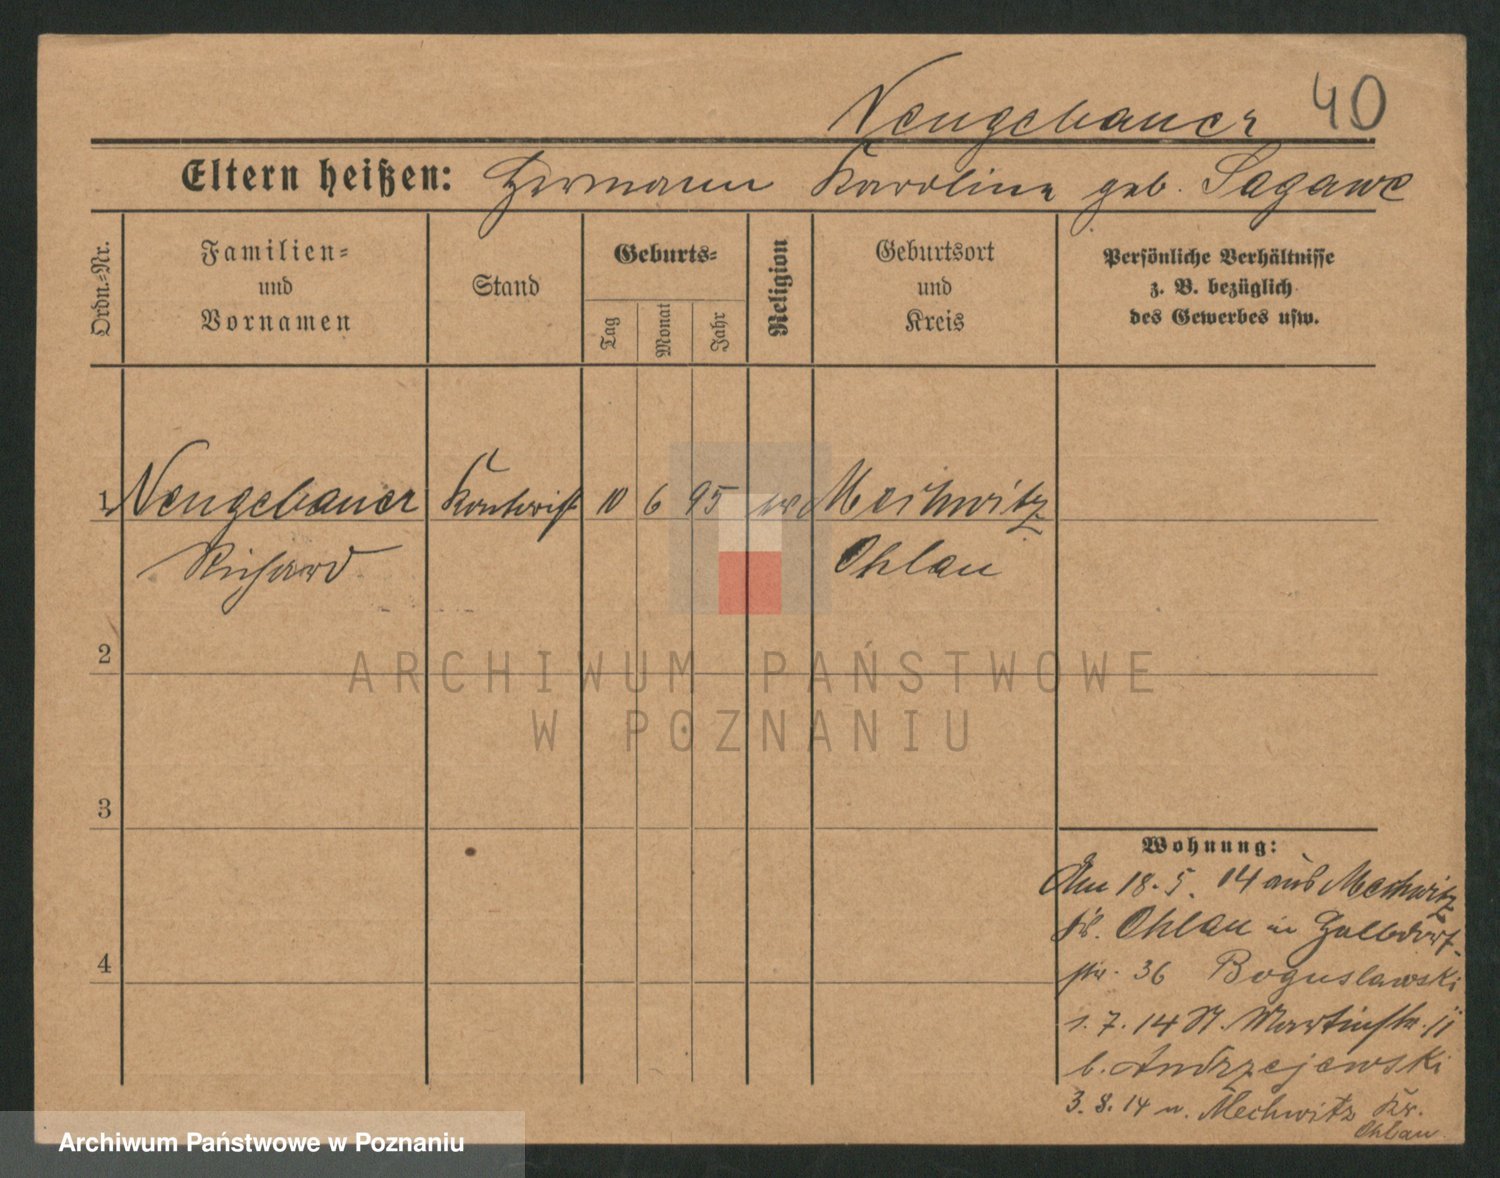 Neugebauer 40
Eltern heißen: Hermann Karoline geb. Sagawe
Ordn.-Nr.
Familien-
und
Vornamen
Stand
Geburts-
Tag
Monat
Jahr
Religion
Geburtsort
und
Kreis
Persönliche Verhältnisse
z. B. bezüglich
des Gewerbes usw.
1 Neugebauer 10 6 95 ev Mechwitz
Richard Ohlau
2
3
4
Wohnung:
Am 18.5.14 aus Mechwitz
Kr. Ohlau in
str. 36 Boguslawski
1.7.14 St. Martinstr. 11
b. Andrzejewski
3.8.14 n. Mechwitz Kr.
Ohlau
ARCHIWUM PAŃSTWOWE
W POZNANIU
Archiwum Państwowe w Poznaniu